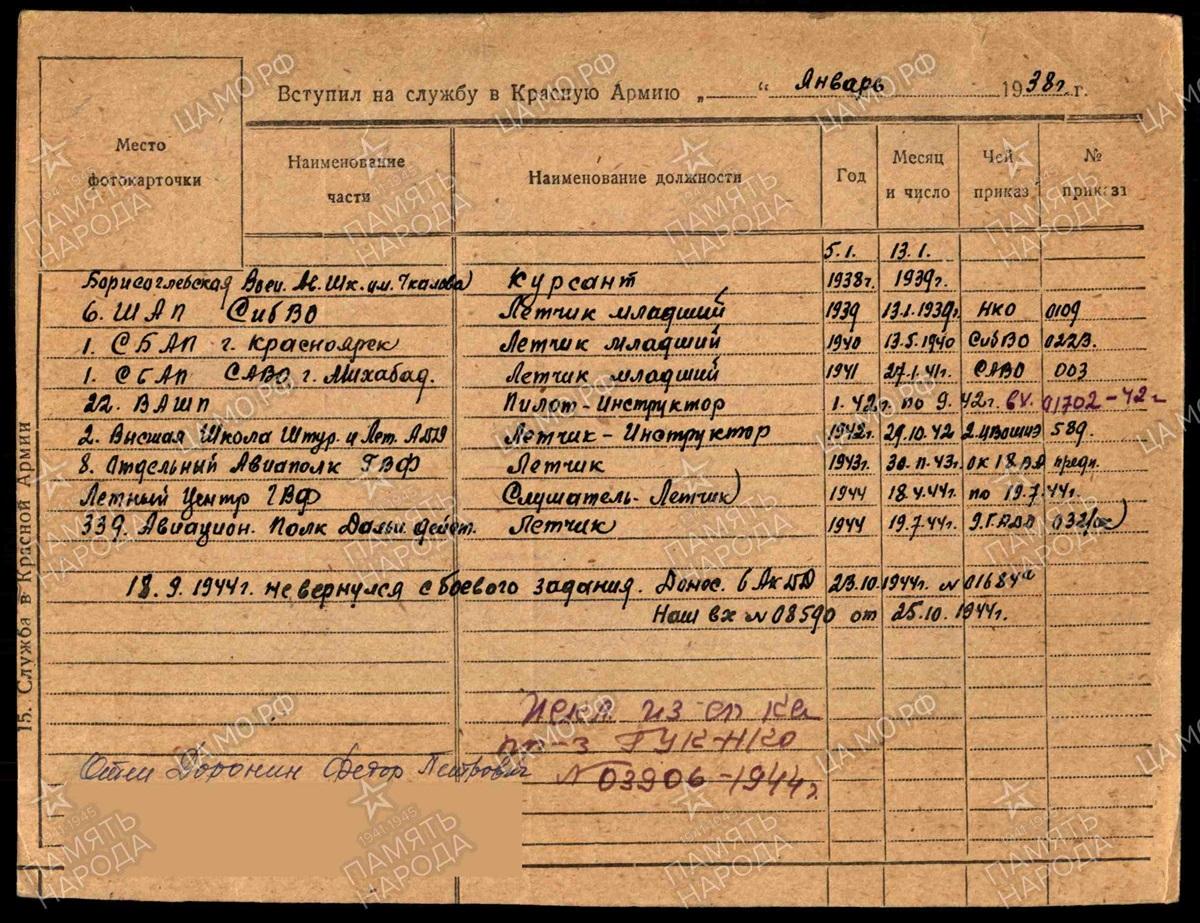 Вступил на службу в Красную Армию „ “ Январь 1938г. г.
Место фотокарточки
Наименование части
Наименование должности
Год
Месяц и число
Чей приказ
№ приказа
5.1. 13.1.
Борисоглебская Воен. Ав. Шк. им. Чкалова Курсант 1938г. 1939г.
6. ШАП СибВО Летчик младший 1939 13.1.1939г. НКО 0109
1. СБАП г. Красноярск Летчик младший 1940 13.5.1940 СибВО 0223.
1. СБАП САВО г. Ашхабад. Летчик младший 1941 27.1.41г. САВО 003
22. ВАШП Пилот-Инструктор 1.42г. по 9.42г. вх. 01702-42г
2. Высшая Школа Штур. и Лет. АДД Летчик-Инструктор 1942г. 29.10.42 589.
8. Отдельный Авиаполк ГВФ Летчик 1943г. ОК 18ВА предп.
Летный Центр ГВФ Слушатель-Летчик 1944 18.4.44г. по 19.7.44г.
339. Авиацион. Полк Дальн. дейст. Летчик 1944 19.7.44г.
18.9.1944г. не вернулся с боевого задания. Донос. 6 Ак ДД 23.10.1944г. № 01684
Наш вх № 08590 от 25.10.1944г.
15. Служба в Красной Армии
Искл из сп ка
пр-з ГУК НКО
№ 03906-1944г.
Отец Доронин Федор Петрович
ЦАМО.РФ
1941-1945
ПАМЯТЬ НАРОДА